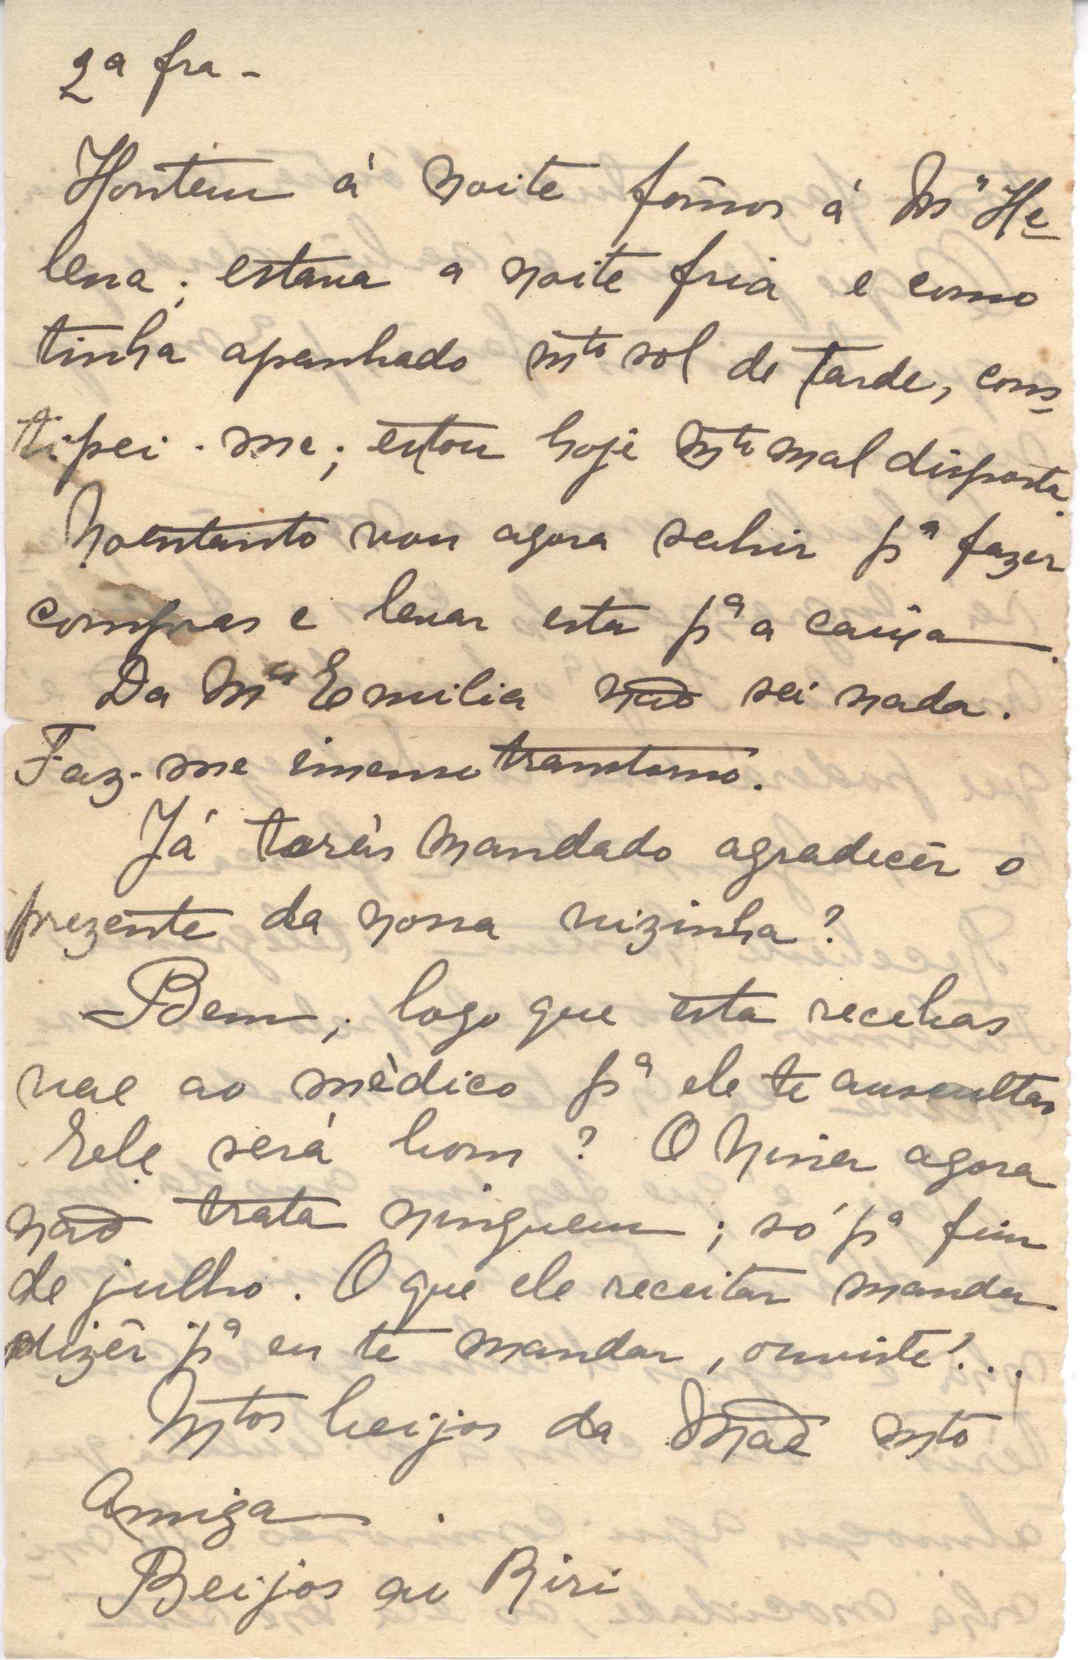 2ª fra -
Hontem á noite fômos á Mª He-
lena; estava a noite fria e como
tinha apanhado mto sol de tarde, cons-
tipei-me; estou hoje mto mal disposta.
No entanto vou agora sahir pª fazer
compras e levar esta pª a caixa.
Da Mª Emilia não sei nada.
Faz-me imenso transtorno.
Já terás mandado agradecêr o
prezente da nossa vizinha?
Bem, logo que esta recebas
vae ao mèdico pª ele te auscultar
Ele será bom? O agora
não trata ninguem; só pª fim
de julho. O que ele receitar manda
dizêr pª eu te mandar, ouviste?...
Mtos beijos da Mãe mto
Amiga.
Beijos ao Riri